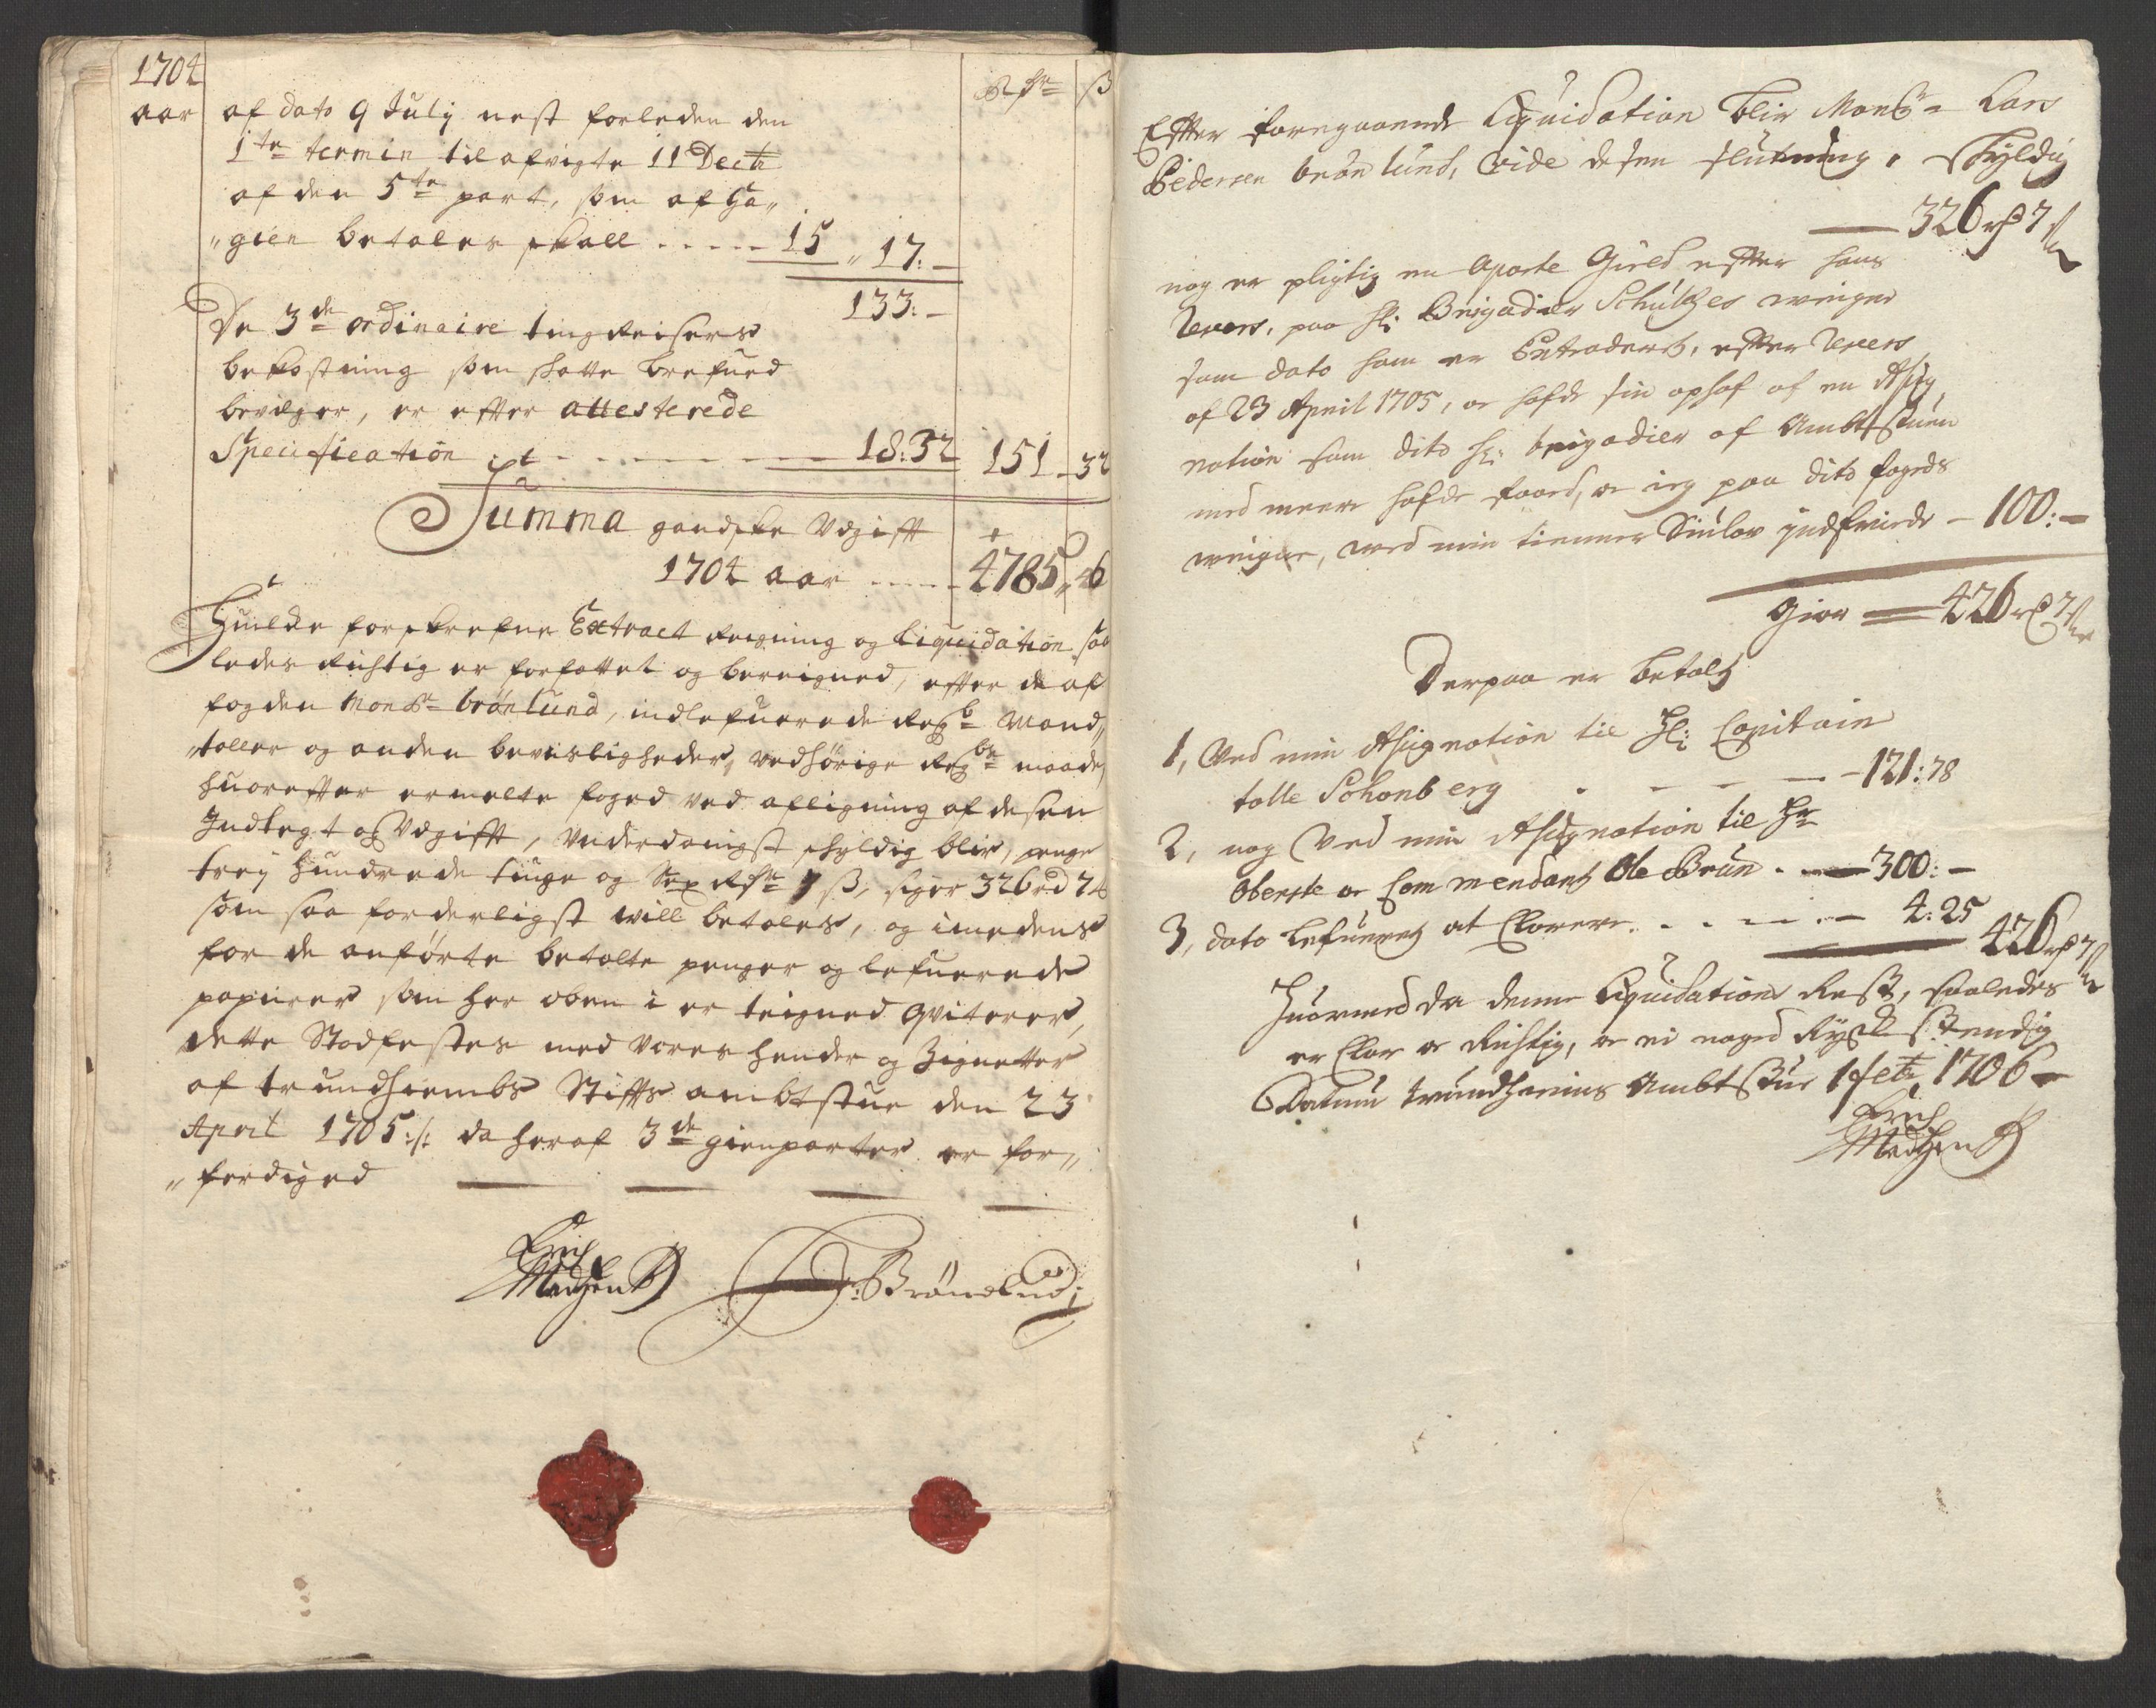 1704
aar af dato 9 July nest forleden den
1te termin til afvigte 11 Decb
af den 5te part, som af ha„
„gien betales skall ..... 15 „ 17. –
133: –
De 3de ordinaire tingReisers
bekostning som skatte brefued
bevilger, er efter attesterede
Specification ..... 18:32 151 – 32
Summa gandske Udgifft
1704 aar ..... 4785 „ 46
Huilke forskrefne Extract Regning og Liquidation saa
ledes Rigtig er forfattet og bereigned, efter de af
fogden Monsr brönlund, indlefuerede Regb Mand„
„taller og anden bevisligheder, vedhörige Regbr maade,
huorefter ermelte foged ved afligning af desen
Indtegt og Udgifft, Underdanigst skyldig blir, penge
trej hundrede tiuge og Sex Rdr 7 ß, siger 326 rd 7 ß
som saa forderligst will betales, og imedens
for de anförte betalte penger og lefuerede
papirer som her oben i er teigned Qviterer,
dette Stadfestes med Vores hender og Zignetter
af trundhiembs Stiffts ambtstue den 23
April 1705 :/: da heraf 3de gienparter er for„
„ferdiged
Erich
Madhsen
Bröndlund;
Effter foregaaende Liquidation blir Monsr Lars
Pedersen brönlund, vide desen slutning, skyldig
326 rd 7 ß
nog er pligtig en Aparte Gield efter hans
Revers, paa Hr: Brigadier Schultzes weigne
sam dato ham er Extraderet, efter Revers
af 23 April 1705, or hafde sin ophaf af en Assig
nation som dito Hr: brigadier af Ambtstuen
med meere hafde faaed, or ieg paa dito fogeds
weigne, med min tienner Sivlov indfriede – 100: –
Giör = 426 rd 7 ß
Derpaa er betalt
1, Ved min Assignation til Hr: Capitain
tolle Schonberg . – – – 121:78
2, nog Ved min Assignation til Hr
Oberste or Commendant Ole Brun . – 300: –
3, dato Lefueret at Clarere . . – – 4:25
426 rd 7 ß
Huormed da denne Liquidations Rest, saaledes
er Clar or Richtig, or ei noged Rystestendig
Datum trundhiems Ambtstue 1 feb 1706 –
Erich
Madhsen